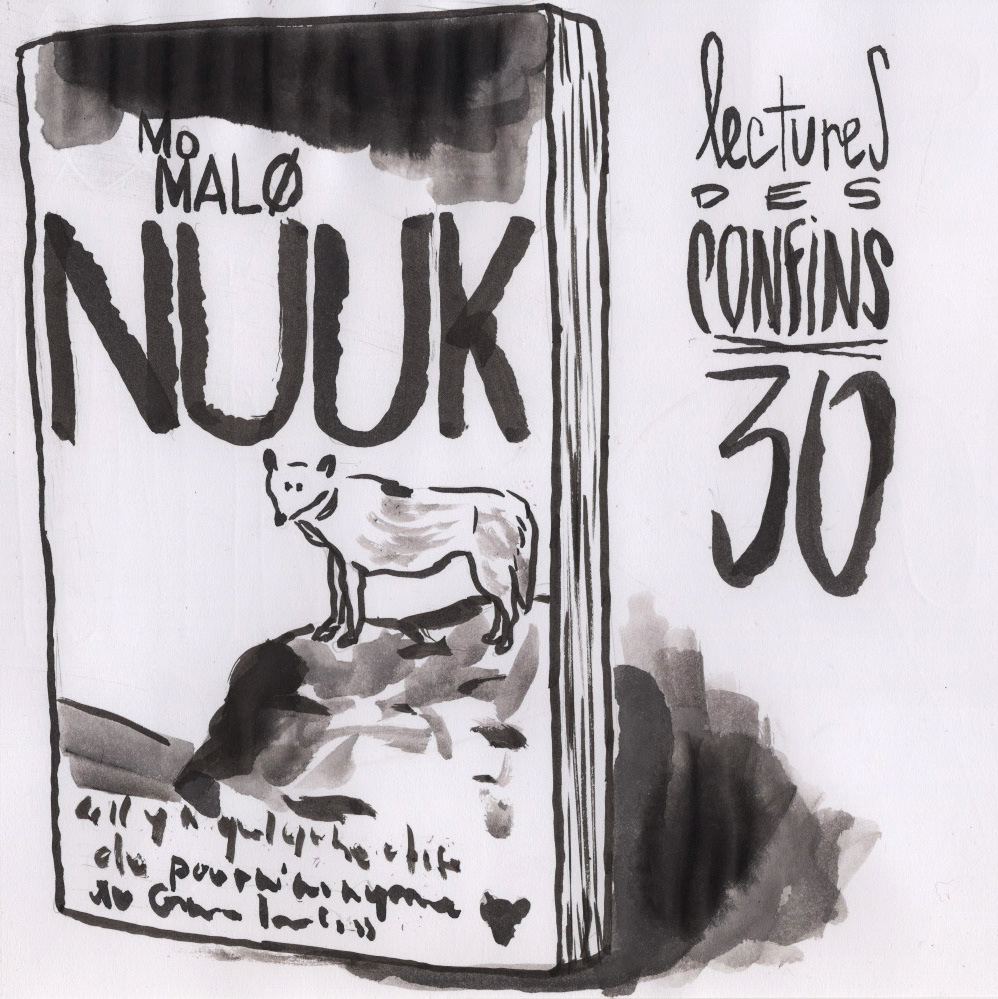 Mo
MALØ
NUUK
«Il y a quelque chose
de pourri au royaume
du Groenland»
lectures
DES
CONFINS
30